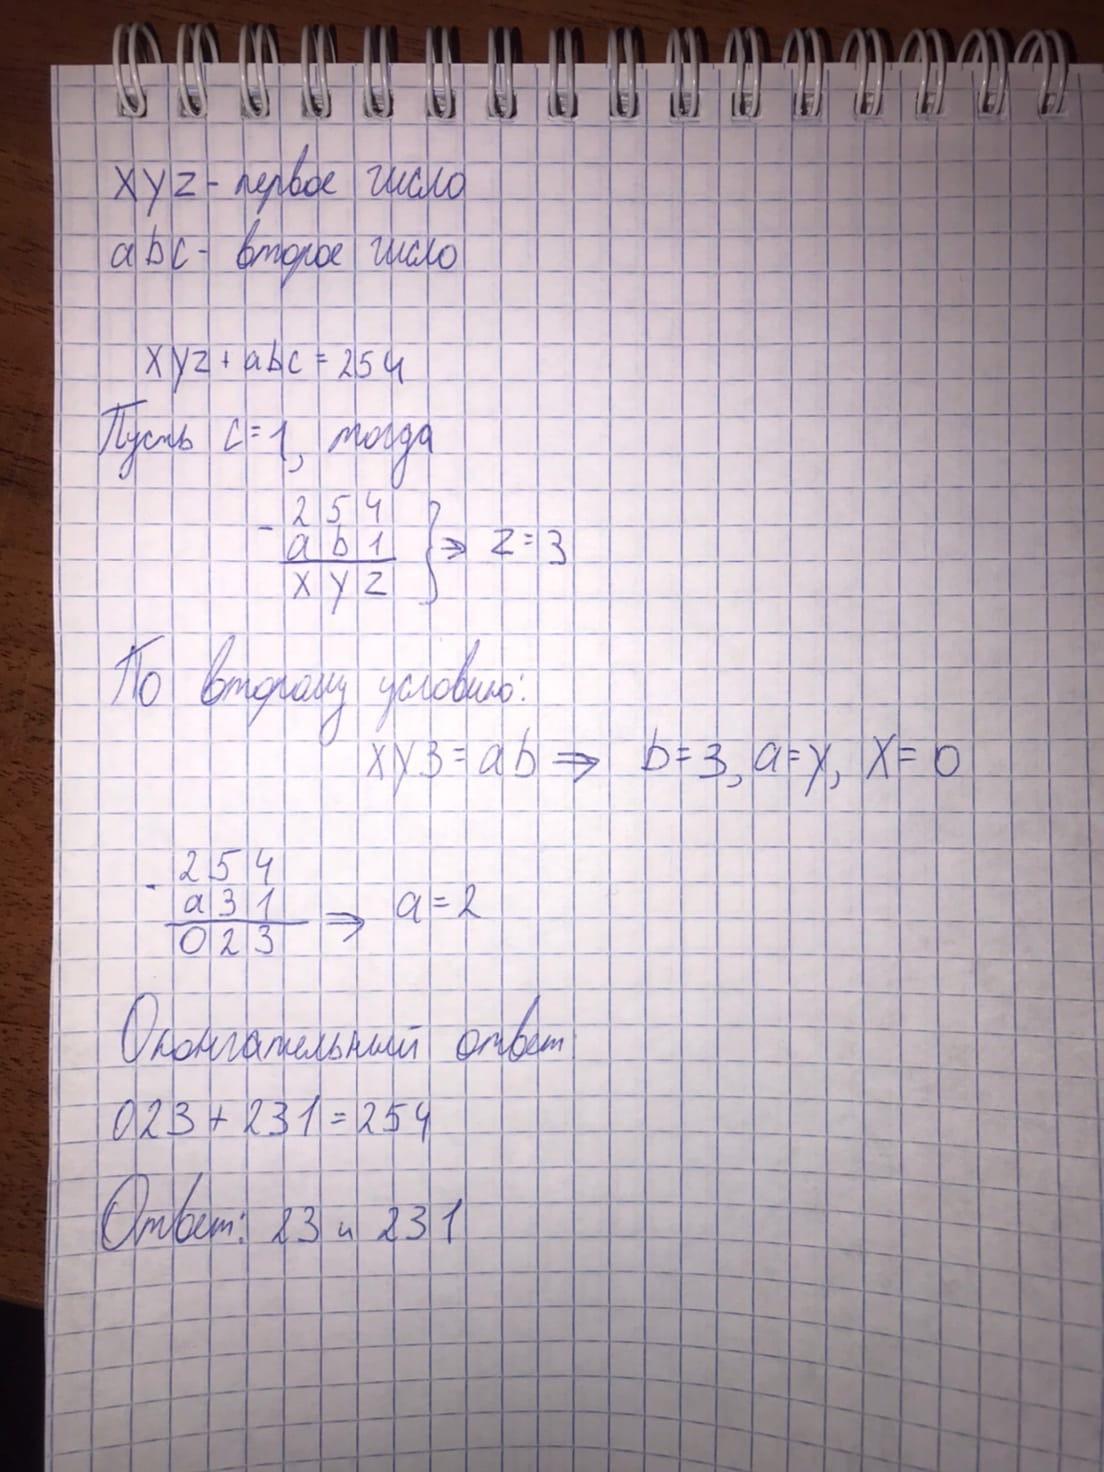 xyz - первое число
abc - второе число
xyz + abc = 254
Пусть c = 1, тогда
- 254
ab1
xyz
} ⇒ z = 3
По второму условию:
xy3 = ab ⇒ b = 3, a = y, x = 0
- 254
a31
023
⇒ a = 2
Окончательный ответ
023 + 231 = 254
Ответ: 23 и 231